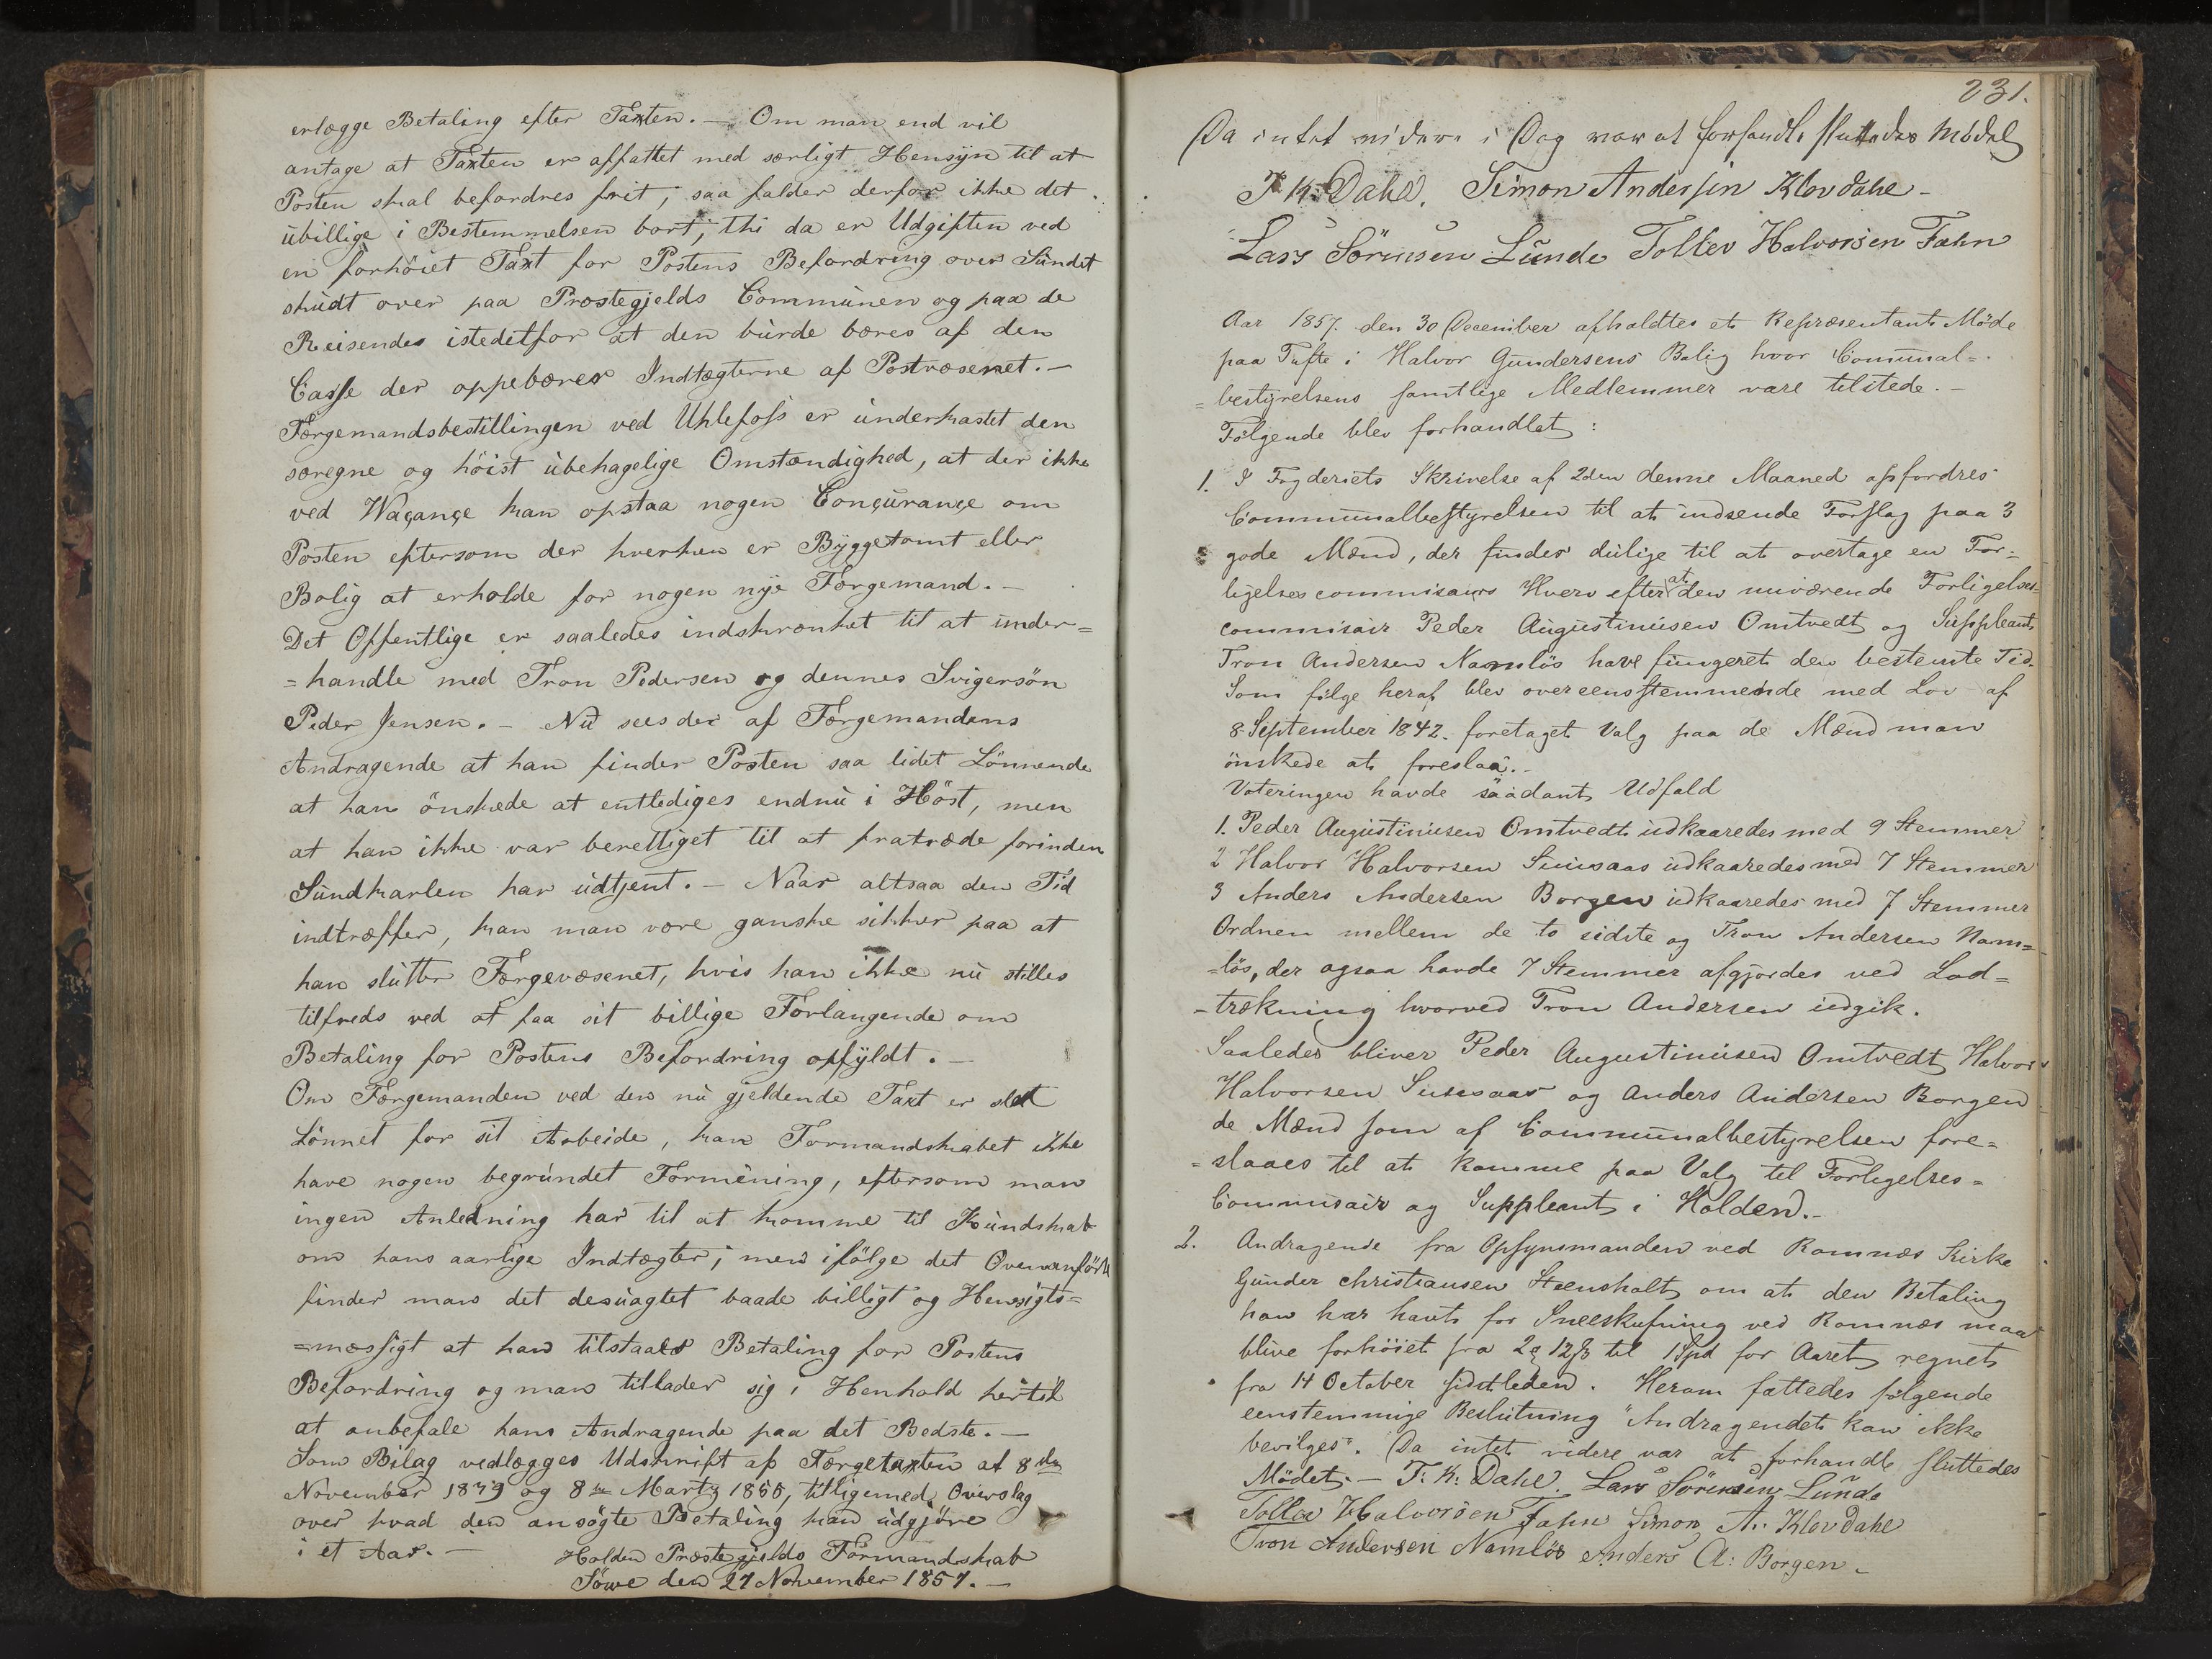 erlægge Betaling efter Taxten. — Om man end vil
antage at Taxten er affattet med særligt Hensyn til at
Posten skal befordres frit, saa falder derfor ikke det
ubillige i Bestemmelsen bort; thi da er Udgiften ved
en forhöiet Taxt for Postens Befordring over Sundet
skudt over paa Præstegjelds Communen og paa de
Reisendes istedetfor at den burde bæres af den
Casse der oppebærer Indtægterne af Postvæsenet. —
Færgemandsbestillingen ved Uhlefoss er underkastet den
særegne og höist ubehagelige Omstændighed, at der ikke
ved Waçançe kan opstaa nogen Conçurançe om
Posten eftersom der hverken er Byggetomt eller
Bolig at erholde for nogen nye Færgemand. —
Det Offentlige er saaledes indskrænket til at under=
=handle med Tron Pedersen og dennes Svigersön
Peder Jensen. — Nu sees der af Færgemandens
Andragende at han finder Posten saa lidet Lönnende
at han önskede at entlediges endnu i Höst, men
at han ikke var berettiget til at fratræde forinden
Sundkarlen har udtjent. — Naar altsaa den Tid
indtræffer, kan man være ganske sikker paa at
han slutter Færgevæsenet, hvis han ikke nu stilles
tilfreds ved at faa sit billige Forlangende om
Betaling for Postens Befordring opfyldt. —
Om Færgemanden ved den nu gjeldende Taxt er slet
Lönnet for sit Arbeide, kan Formandskabet ikke
have nogen begrundet Formening, eftersom man
ingen Anledning har til at komme til Kundskab
om hans aarlige Indtægter; men ifölge det Ovenanförte
finder man det desuagtet baade billigt og Hensigts=
=mæssigt at han tilstaaes Betaling for Postens
Befordring og man tillader sig i Henhold hertil
at anbefale hans Andragende paa det Bedste. —
Som Bilag vedlægges Udskrift af Færgetaxten af 8de
November 1839 og 8de Martz 1850, tilligemed Overslag
over hvad den ansögte Betaling kan udgjöre
i et Aar. — Holden Præstegjelds Formandskab
Söwe den 27 November 1857. —
231.
Da intet videre i Dag var at forhandle sluttedes Mödet
F. K. Dahl. Simon Andersen Klovdahl -
Lars Sörensen Lunde Tollev Halvorsen Fahn
Aar 1857. den 30 December afholdtes et Repræsentant Möde
paa Tufte i Halvor Gundersens Bolig hvor Comunal=
=bestyrelsens samtlige Medlemmer vare tilstede. —
Fölgende blev forhandlet:
1. I Fogderiets Skrivelse af 2den denne Maaned opfordres
Communalbestyrelsen til at indsende Forslag paa 3
gode Mænd, der findes dulige til at overtage en For=
ligelsescommisairs Hverv efter at den nuværende Forligelses=
commisair Peder Augustinusen Omtvedt og Suppleant
Tron Andersen Namlös have fungeret den bestemte Tid.
Som fölge heraf blev overeensstemmende med Lov af
8 September 1842. foretaget Valg paa de Mænd man
önskede at foreslaa. —
Voteringen havde saadant Udfald
1. Peder Augustinusen Omtvedt udkaaredes med 9 Stemmer
2 Halvor Halvorsen udkaaredes med 7 Stemmer
3 Anders Andersen Borgen udkaaredes med 7 Stemmer
Ordnen mellem de to sidste og Tron Andersen Nam=
=lös, der ogsaa havde 7 Stemmer afgjordes ved Lod=
-trækning hvorved Tron Andersen udgik.
Saaledes bliver Peder Augustinusen Omtvedt, Halvor
Halvorsen og Anders Andersen Borgen
de Mænd som af Communalbestyrelsen fore=
=slaaes til at komme paa Valg til Forligelses=
Commisair og Suppleant i Holden. —
2. Andragende fra Opsynsmanden ved Romnæs Kirke
Gunder Christiansen Steensholt, om at den Betaling
han har havt for Sneeskufning ved Romnæs maa
blive forhöiet fra 2 12 til 1 Spd for Aaret, regnet
fra 14 October sidstleden. Herom fattedes fölgende
eenstemmige Beslutning "Andragendet kan ikke
bevilges". Da intet videre var at forhandle sluttedes
Mödet. — F. K. Dahl. Lars Sörensen Lunde
Tollev Halvorsen Fahn Simon A. Klovdahl
Tron Andersen Namlös Anders A: Borgen. -